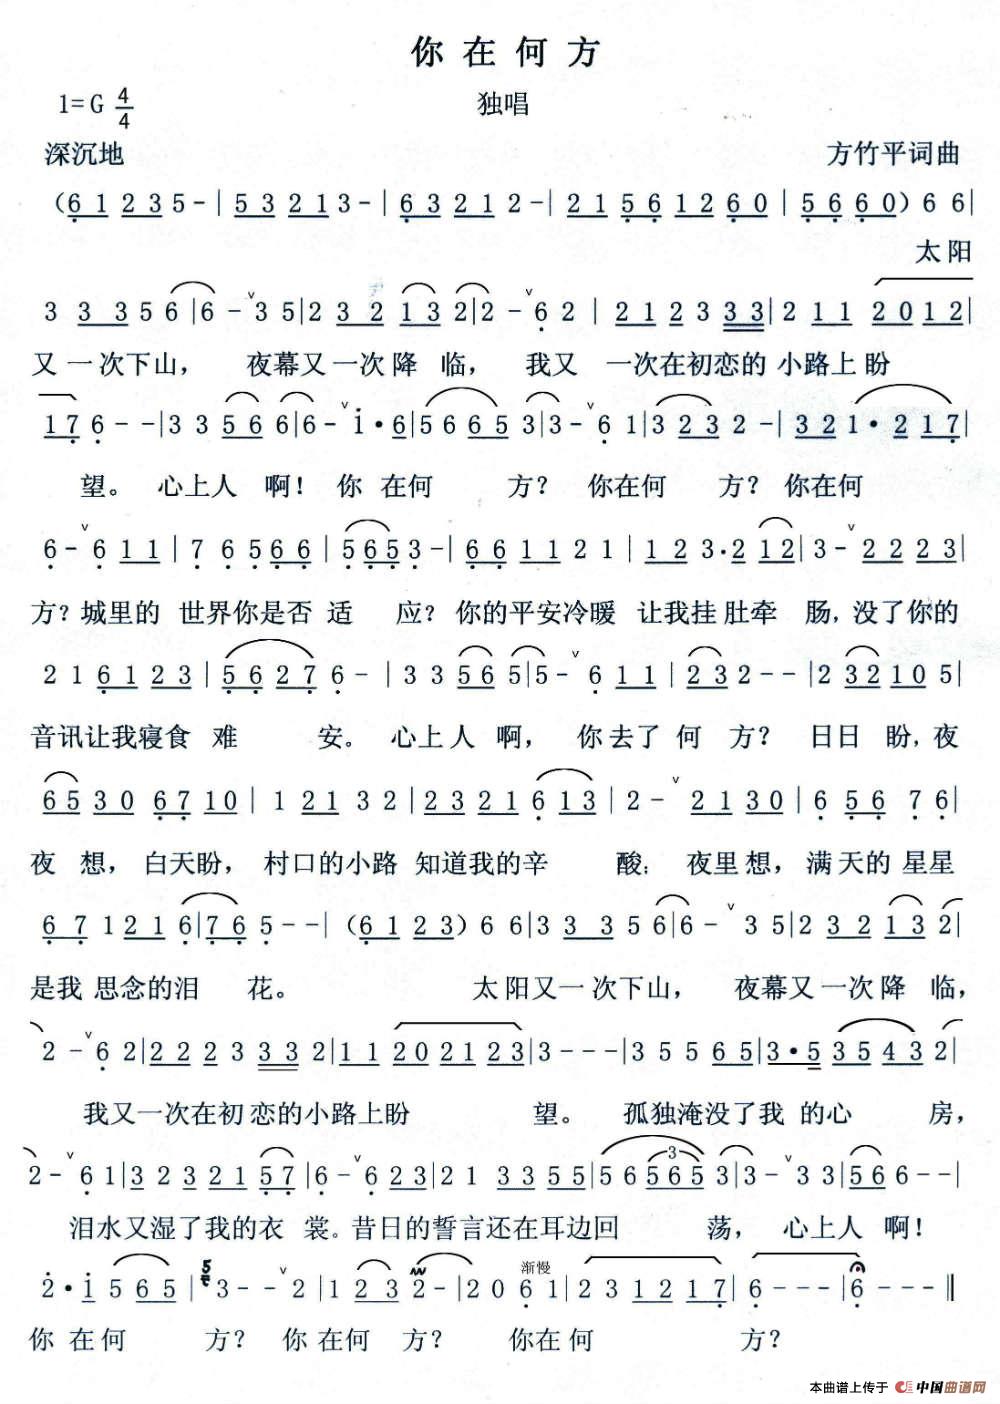 你在何方
1=G 4/4
独唱
深沉地
方竹平词曲
(6 1 2 3 5 - | 5 3 2 1 3 - | 6 3 2 1 2 - | 2 1 5 6 1 2 6 0 | 5 6 6 0) 6 6 |
太阳
3 3 3 5 6 | 6 - ∨ 3 5 | 2 3 2 1 3 2 | 2 - ∨ 6 2 | 2 1 2 3 3 3 | 2 1 1 2 0 1 2 |
又一次下山， 夜幕又一次降 临， 我又 一次在初恋的 小路上盼
1 7 6 - - | 3 3 5 6 6 | 6 - ∨ 1 · 6 | 5 6 6 5 3 | 3 - ∨ 6 1 | 3 2 3 2 - | 3 2 1 · 2 1 7 |
望。 心上人 啊！ 你 在何 方？ 你在何 方？ 你在何
6 - ∨ 6 1 1 | 7 6 5 6 6 | 5 6 5 3 - | 6 6 1 1 2 1 | 1 2 3 · 2 1 2 | 3 - ∨ 2 2 2 3 |
方？城里的 世界你是否 适 应？ 你的平安冷暖 让我挂 肚牵 肠，没了你的
2 1 6 1 2 3 | 5 6 2 7 6 - | 3 3 5 6 5 | 5 - ∨ 6 1 1 | 2 3 2 - - | 2 3 2 1 0 5 |
音讯让我寝食 难 安。 心上人 啊， 你去了 何 方？ 日日 盼，夜
6 5 3 0 6 7 1 0 | 1 2 1 3 2 | 2 3 2 1 6 1 3 | 2 - ∨ 2 1 3 0 | 6 5 6 7 6 |
夜 想， 白天盼， 村口的小路 知道我的辛 酸； 夜里想，满天的星星
6 7 1 2 1 6 | 7 6 5 - - | (6 1 2 3) 6 6 | 3 3 3 5 6 | 6 - ∨ 3 5 | 2 3 2 1 3 2 |
是我 思念的泪 花。 太阳又一次下山， 夜幕又一次降 临，
2 - ∨ 6 2 | 2 2 2 3 3 3 2 | 1 1 2 0 2 1 2 3 | 3 - - - | 3 5 5 6 5 | 3 · 5 3 5 4 3 2 |
我又一次在初恋的小路上盼 望。 孤独淹没了我 的心 房，
2 - ∨ 6 1 | 3 2 3 2 1 5 7 | 6 - ∨ 6 2 3 | 2 1 3 3 5 5 | 5 6 5 6 5 3 | 3 - ∨ 3 3 | 5 6 6 - - |
3
泪水又湿了我的衣 裳。昔日的誓言还在耳边回 荡， 心上人 啊！
渐慢
2 · 1 5 6 5 | 5 3 - - ∨ 2 | 1 2 3 2 - | 2 0 6 1 | 2 3 1 2 1 7 | 6 - - - | 6 - - - ‖
你 在何 方？ 你在何 方？ 你在何 方？
本曲谱上传于 中国曲谱网